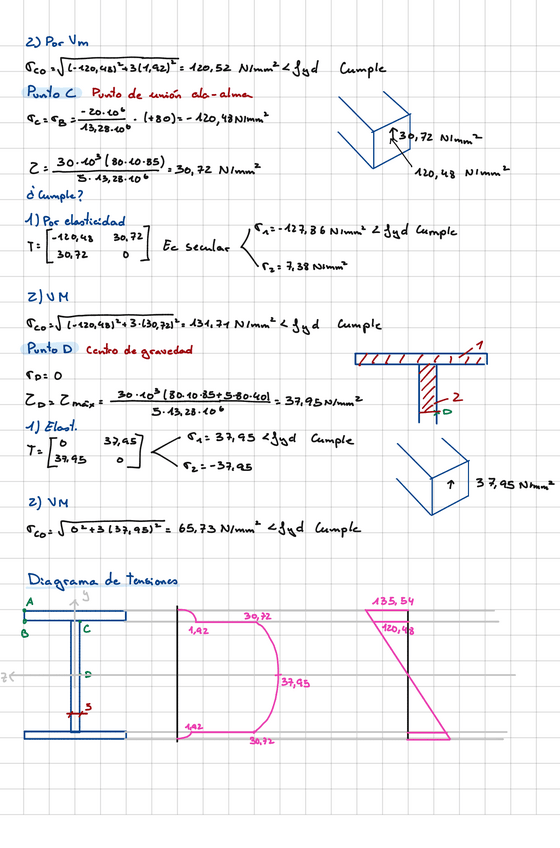 2) Por Vm
σco = √((-120,48)²+3(1,92)²) = 120,52 N/mm² < fyd Cumple
Punto C Punto de unión ala-alma
σc = σB = -20·10⁶ / 13,28·10⁶ · (+80) = -120,48 N/mm²
30,72 N/mm²
120,48 N/mm²
Z = 30·10³ (80·10·85) / 5·13,28·10⁶ = 30,72 N/mm²
¿Cumple?
1) Por elasticidad
T = [-120,48 30,72
30,72 0] Ec secular
σ1 = -127,86 N/mm² < fyd Cumple
σ2 = 7,38 N/mm²
2) VM
σco = √((-120,48)²+3·(30,72)²) = 131,71 N/mm² < fyd Cumple
Punto D Centro de gravedad
σD = 0
ZD = Zmáx = 30·10³ (80·10·85+5·80·40) / 5·13,28·10⁶ = 37,95 N/mm²
1
2
D
1) Elast.
T = [0 37,95
37,95 0]
σ1 = 37,95 < fyd Cumple
σ2 = -37,95
37,95 N/mm²
2) VM
σco = √(0²+3(37,95)²) = 65,73 N/mm² < fyd Cumple
Diagrama de tensiones
A
B
C
D
y
z
5
1,92
30,72
37,95
1,92
30,72
135,54
120,48